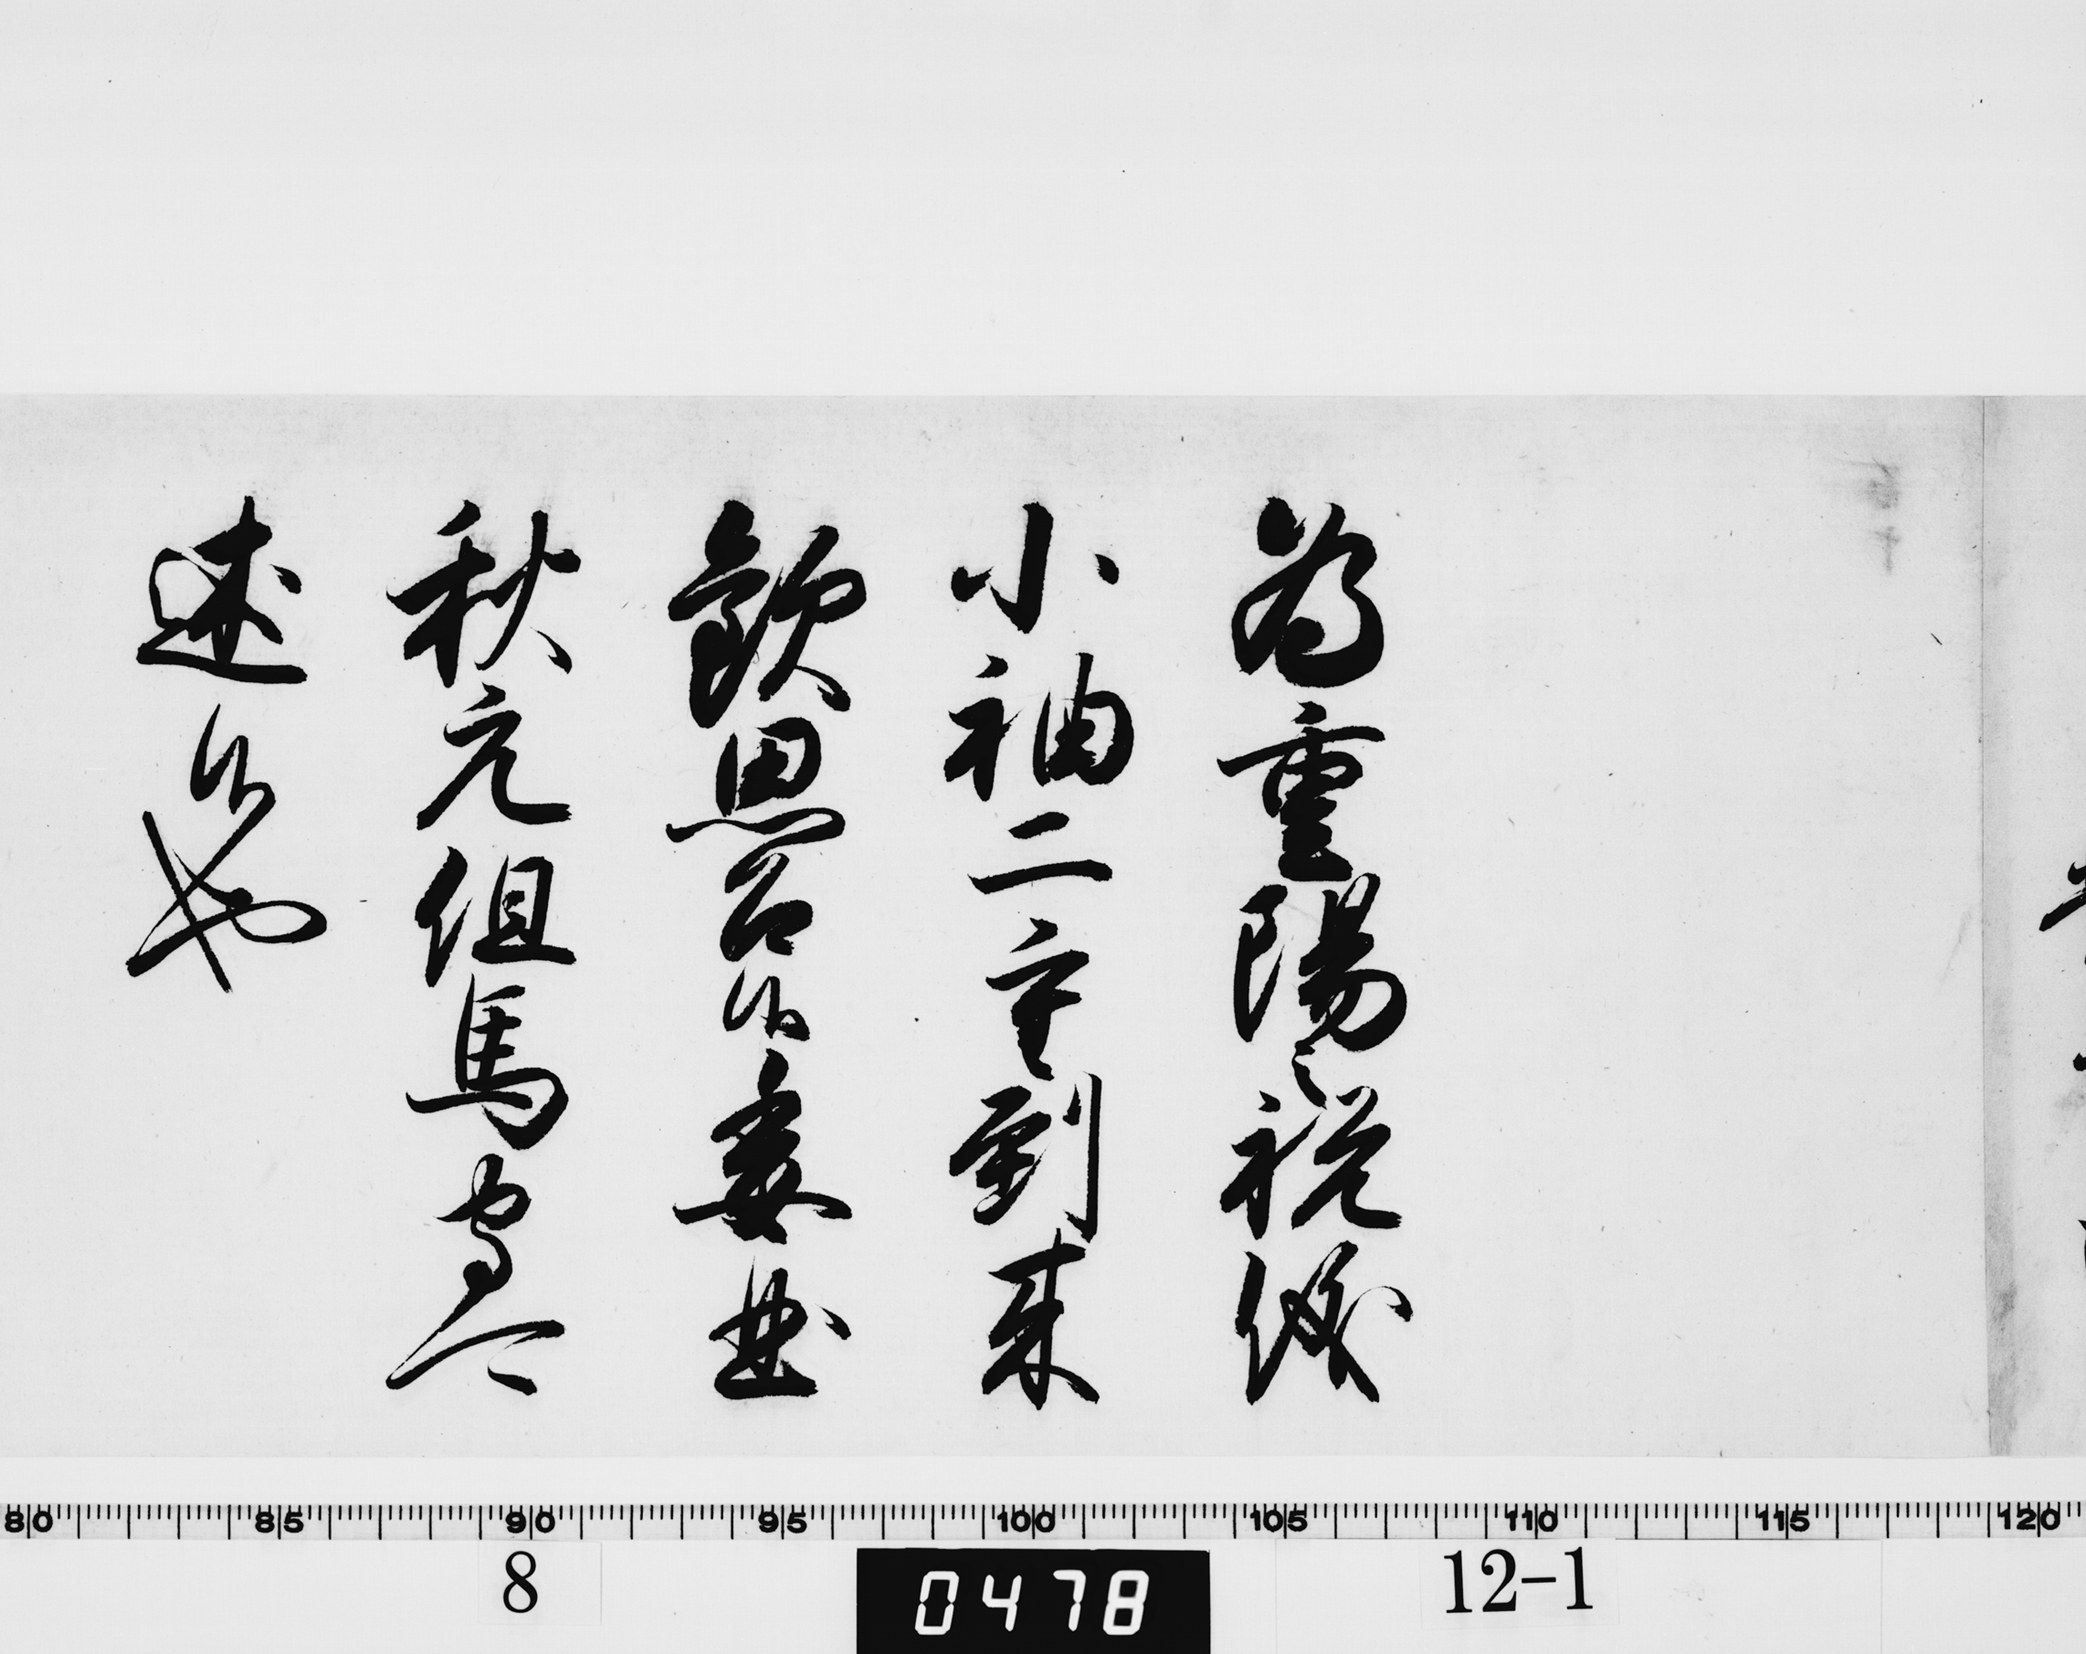 為重陽之祝儀
小袖二重到来
歓思召候委曲
秋元但馬守可
述候也
80 85 90 95 100 105 110 115 120
8 0478 12-1